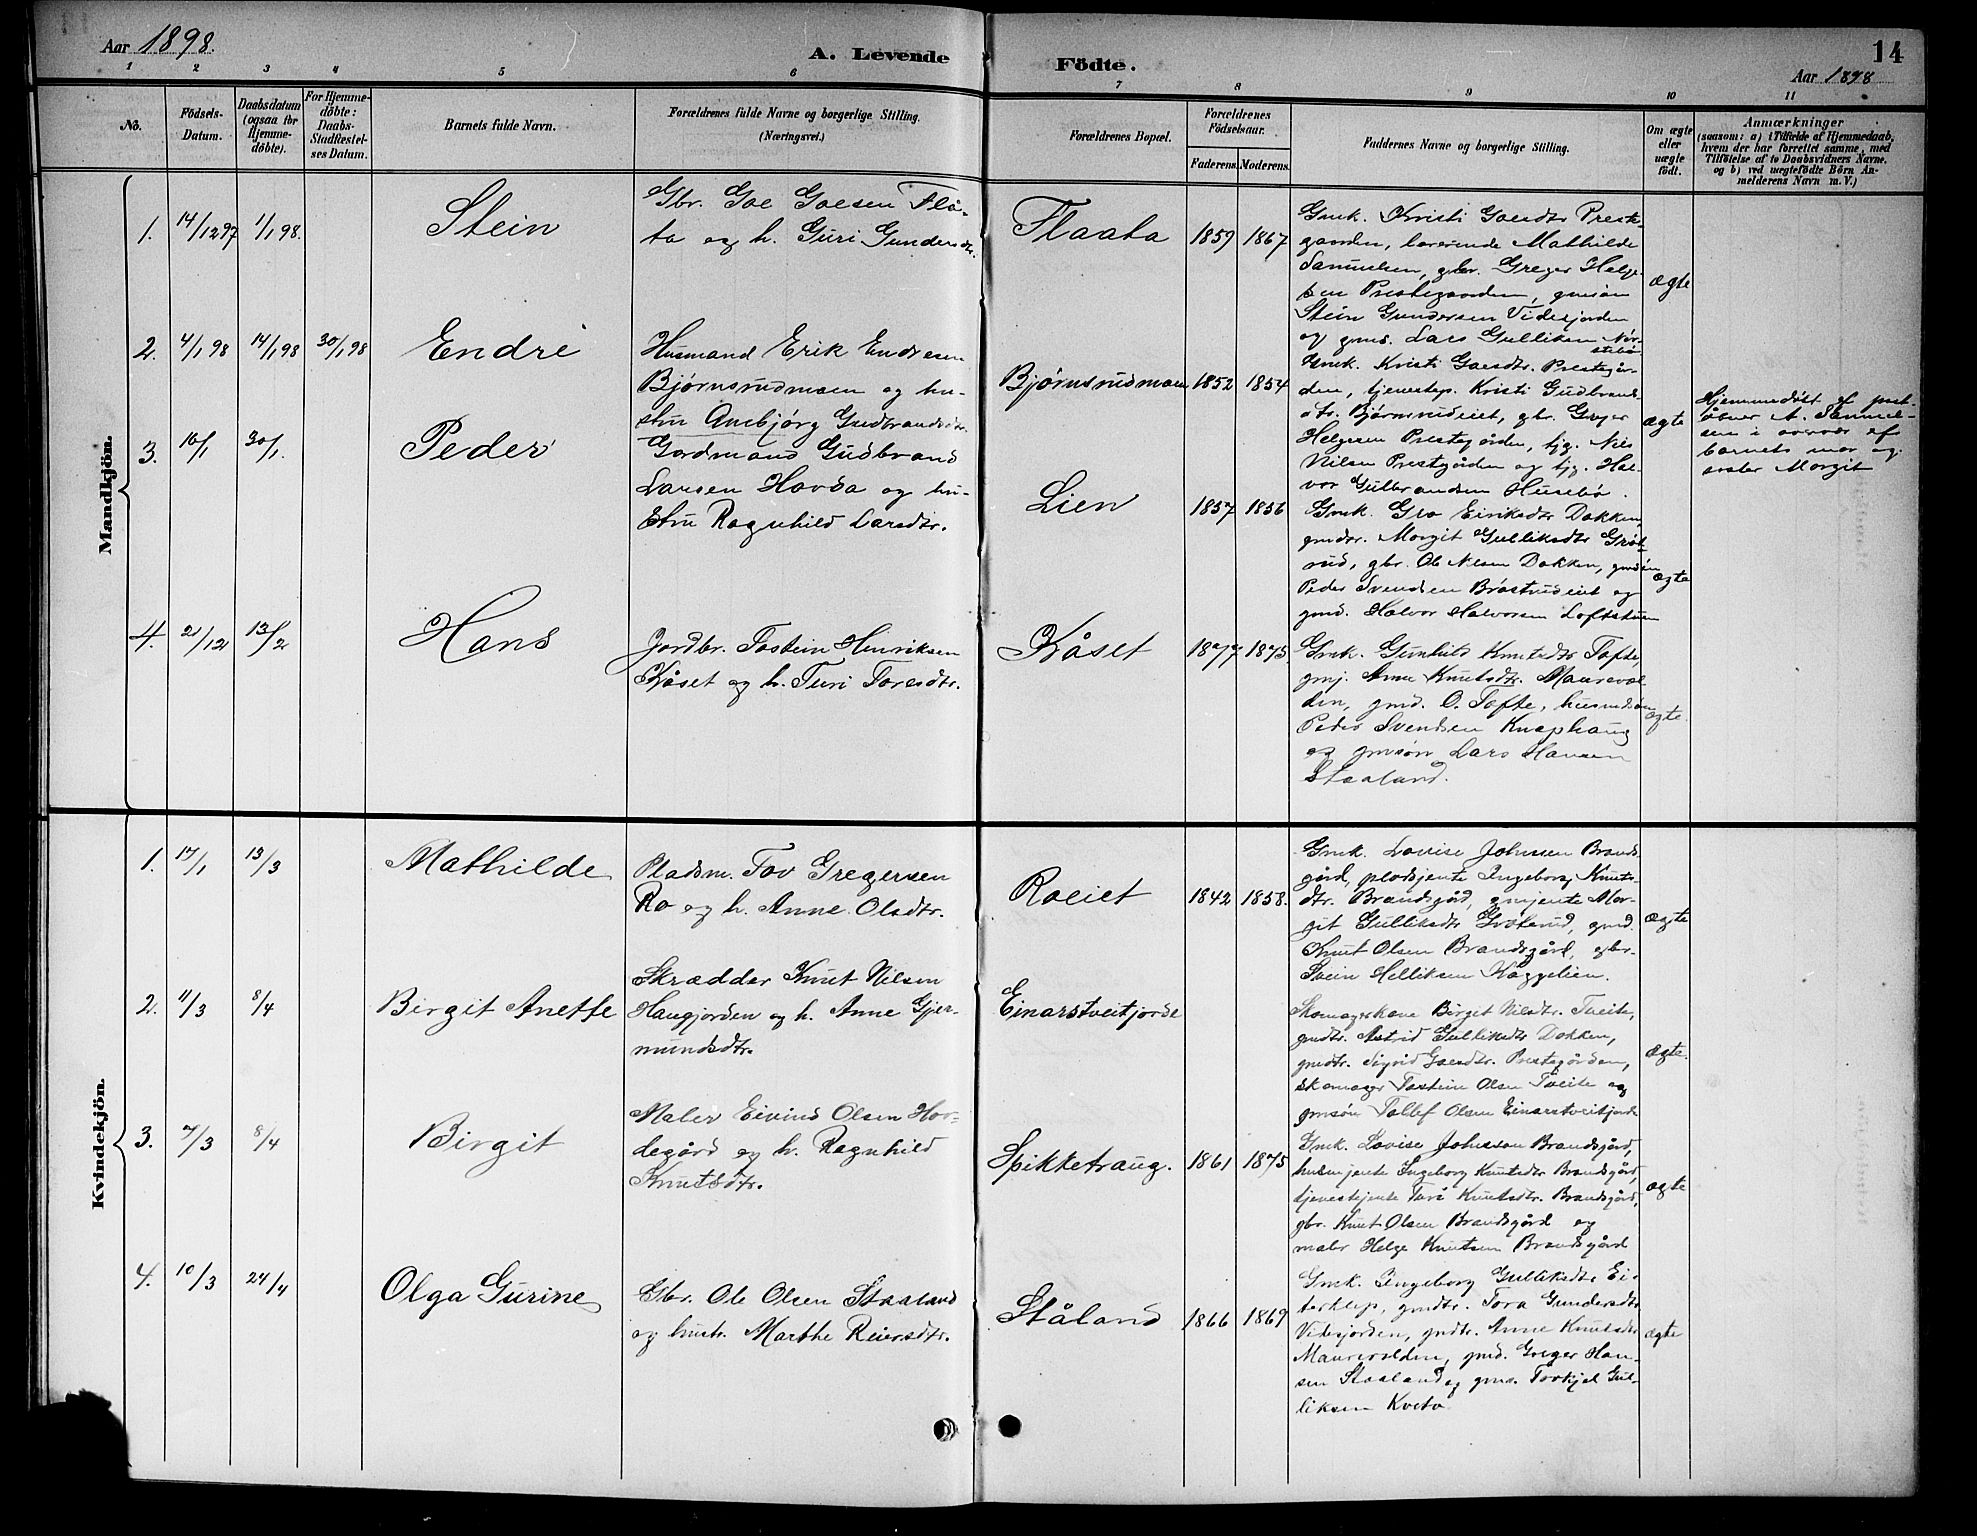 Aar 1898.
A. Levende
Födte.
14
Aar 1898
1 2 3 4 5 6 7 8 9 10 11
No.
Födsels-
Datum.
Daabsdatum
(ogsaa for
Hjemme-
döbte).
For Hjemme-
döbte:
Daabs-
Stadfestel-
ses Datum.
Barnets fulde Navn.
Forældrenes fulde Navne og borgerlige Stilling.
(Næringsvei.)
Forældrenes Bopæl.
Forældrenes
Födselsaar.
Faderens. Moderens.
Faddernes Navne og borgerlige Stilling.
Om ægte
eller
uægte
födt.
Anmærkninger
(saasom: a) i Tilfælde af Hjemmedaab,
hvem der har forrettet samme, med
Tilföielse af to Daabsvidners Navne,
og b) ved uægtefödte Börn An-
melderens Navn m. V.)
Mandkjön.
1. 14/12 97 1/1 98.
Stein
Gbr. Goe Goesen Flå-
ta og h. Guri Gundersdtr.
Flaata
1859 1867
Gmk. Kristi Goesdtr Prest-
gaarden, lærerinde Mathilde
Samuelsen, gbr. Greger Helge-
sen Prestegaarden, gmsøn
Stein Gundersen Videsjorden
og gmd. Lars Gulliksen Nør-
stebø
ægte
2. 4/1 98 14/1 98 30/1 98
Endre
Husmand Erik Endresen
Bjørnsrudmoen og hu-
stru Anebjørg Gudbrandsdtr.
Bjørnsrudmoen
1852 1854
Gmk. Kristi Goesdtr. Prestegår-
den, tjenestep. Kristi Gudbrands-
dtr. Bjørnsrudeiet, gbr. Greger
Helgesen Prestegården, tjg. Nils
Nilsen Prestgården og tjg. Hal-
vor Gulbrandsen Husebø.
ægte
Hjemmedøbt af post-
åbner A. Samuel-
sen i overvær af
barnets mor og
søster Margit
3. 10/1 30/1.
Peder
Gordmand Gudbrand
Larsen Hovda og hu-
stru Ragnhild Larsdtr.
Lien
1857 1856
Gmk. Gro Eiriksdtr Dokken,
gmdtr. Morgit Gulliksdtr Grøt-
rud, gbr. Ole Nilsen Dokken, gmdsøn
Peder Svendsen Bråstrudeiet og
gmd. Halvor Halvorsen Loftstuen
ægte
4. 21/12 13/2
Hans
Jordbr. Tostein Henriksen
Kåset og h. Turi Toresdtr.
Kåset
1877 1875.
Gmk. Gunhild Knutsdtr Tofte,
gmj. Anne Knutsdtr. Maurevol-
den, gmd. O. Tofte, husmdsøn
Peder Svendsen Knaphaug
og gmsøn Lars Hansen
Staaland.
ægte.
Kvindekjön.
1. 17/1 13/3
Mathilde
Pladsm. Tov Gregersen
Ro og h. Anne Olsdtr.
Roeiet
1842 1858.
Gmk. Lovise Johnsen Brands-
gård, pladsjente Ingeborg Knuts-
dtr. Brandsgård, gmjente Mor-
git Gulliksdtr Grøterud, gmd.
Knut Olsen Brandsgård, gbr.
Svein Helliksen Kaggelien.
ægte
2. 11/3 8/4
Birgit Anette
Skrædder Knut Nilsen
Haugjorden og h. Anne Gjer-
mundsdtr.
Einarstveitjorde
Skomagerkone Birgit Nilsdtr. Tveite,
gmdtr. Astrid Gulliksdtr Dokken,
gmdtr. Sigrid Goesdtr. Prestegården,
skomager Tostein Olsen Tveite og
gmsøn Tollef Olsen Einarstveitjorde
ægte.
3. 7/3 8/4
Birgit
Maler Eivind Olsen Hov-
degård og h. Ragnhild
Knutsdtr.
Spikketraug.
1861 1875
Gmk. Lovise Johnsen Brandsgård,
husmjente Ingeborg Knutsdtr Brandsgård,
tjenestejente Turi Knutsdtr. Brandsgård,
gbr. Knut Olsen Brandsgård og
maler Helge Knutsen Brandsgård
ægte
4. 10/3 24/4
Olga Gurine
Gbr. Ole Olsen Staaland
og hustr. Marthe Reiersdtr.
Ståland
1866 1869
Gmk. Ingeborg Gulliksdtr Ei-
terklep, gmdtr. Tora Gundersdtr
Videsjorden, gmdtr. Anne Knutsdtr
Maurevolden, gmd. Greger Han-
sen Staaland og gmd. Torkjel Gul-
liksen Kveto.
ægte